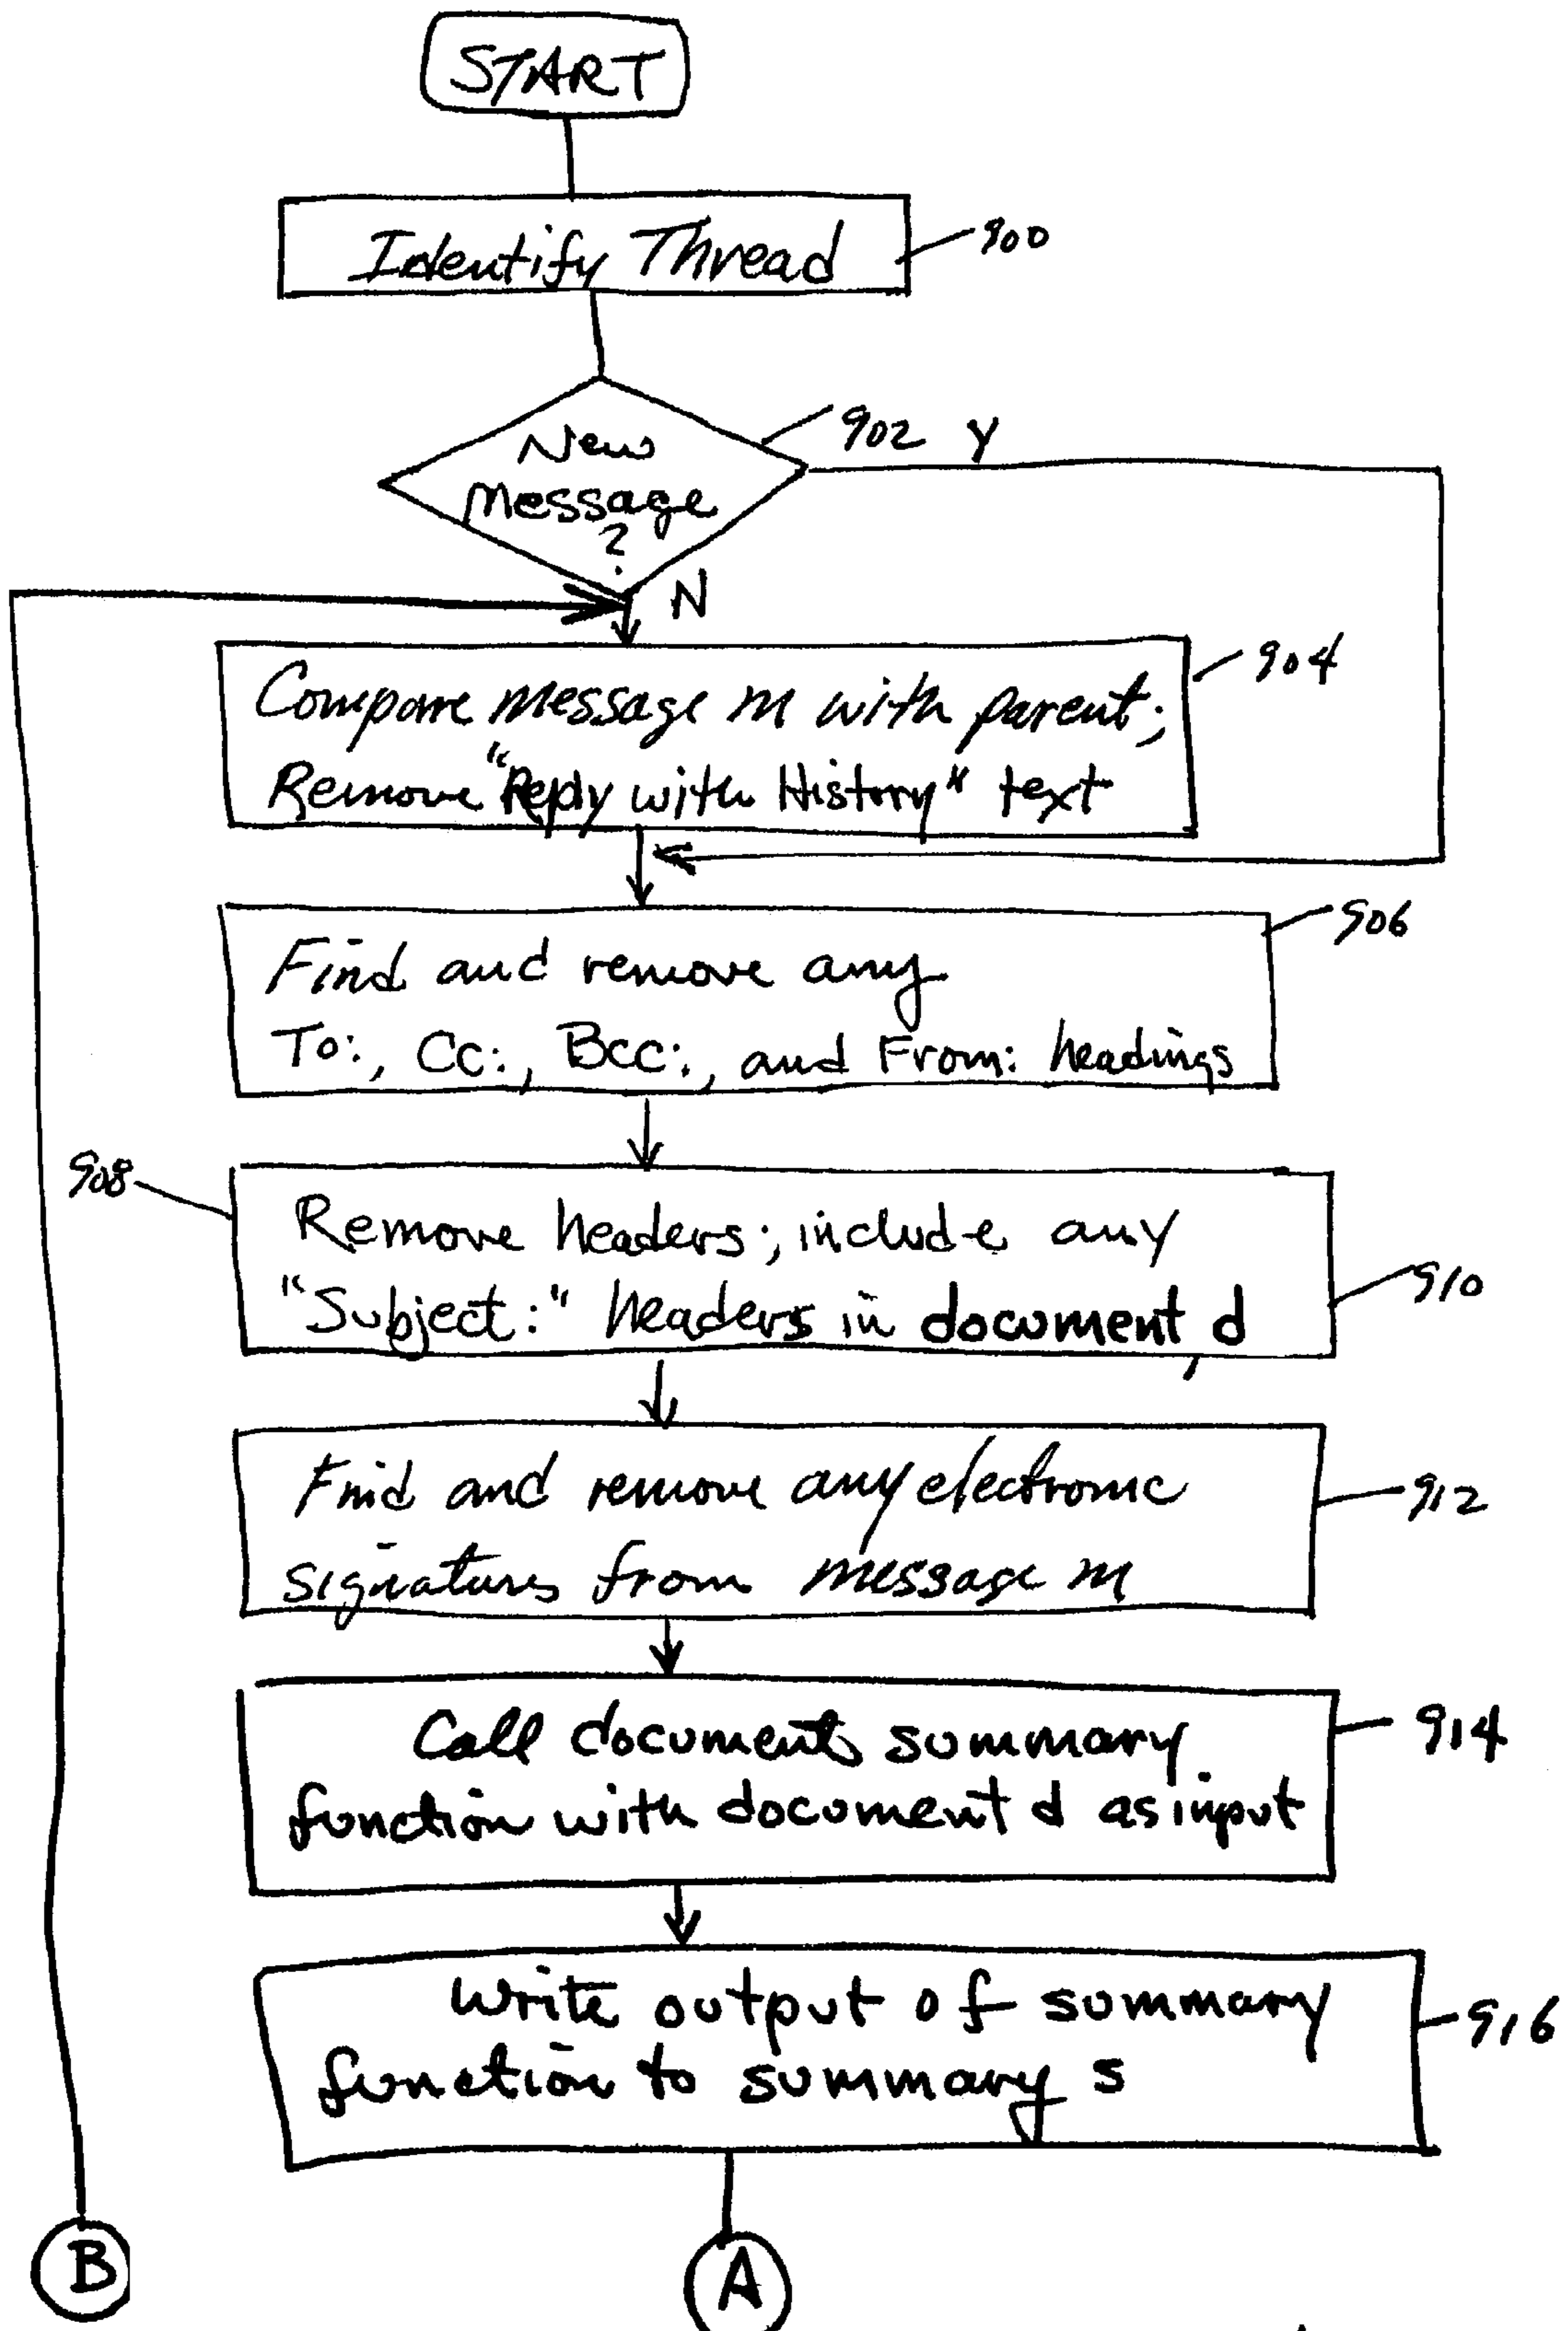 START
Identify Thread
900
New
Message
?
902 Y
N
Compare message m with parent;
Remove "Reply with History" text
904
Find and remove any
To:, Cc:, Bcc:, and From: headings
906
908
Remove headers; include any
"Subject:" headers in document d
910
Find and remove any electronic
signatures from message m
912
Call document summary
function with document d as input
914
Write output of summary
function to summary s
916
B
A